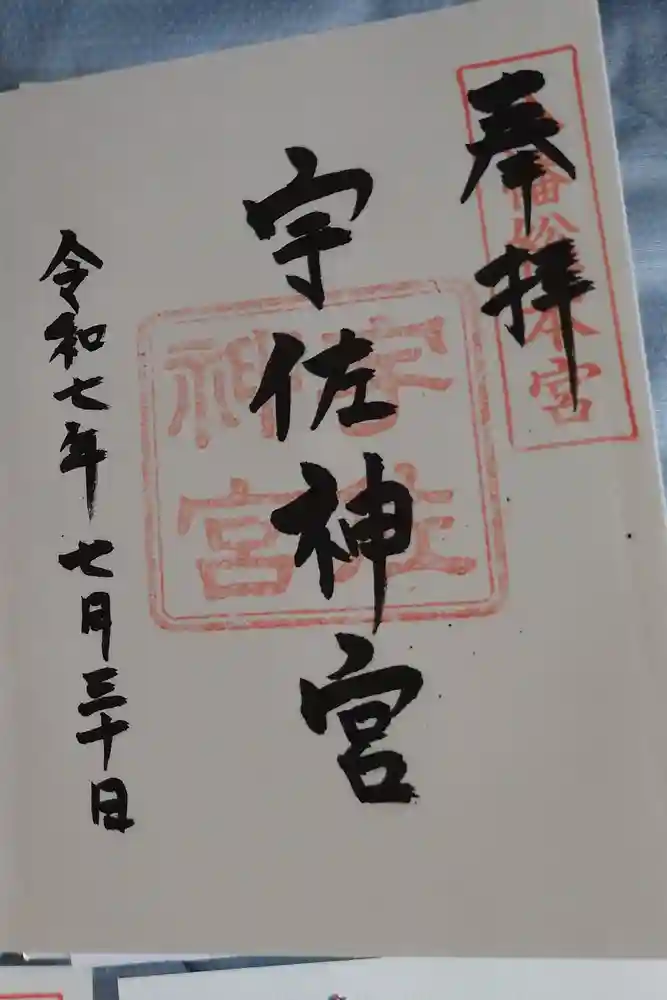 奉拝
八幡総本宮
宇佐神宮
宇佐
神宮
令和七年七月三十日